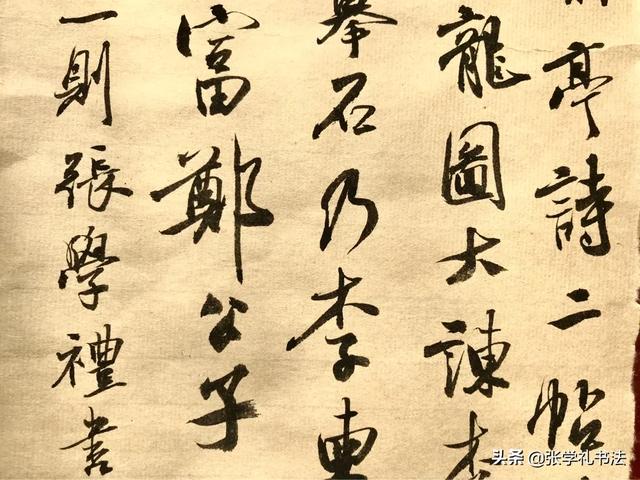 亭詩二帖
龍圖大諫
石乃李
富鄭公子
一則張學禮書
头条 @张学礼书法